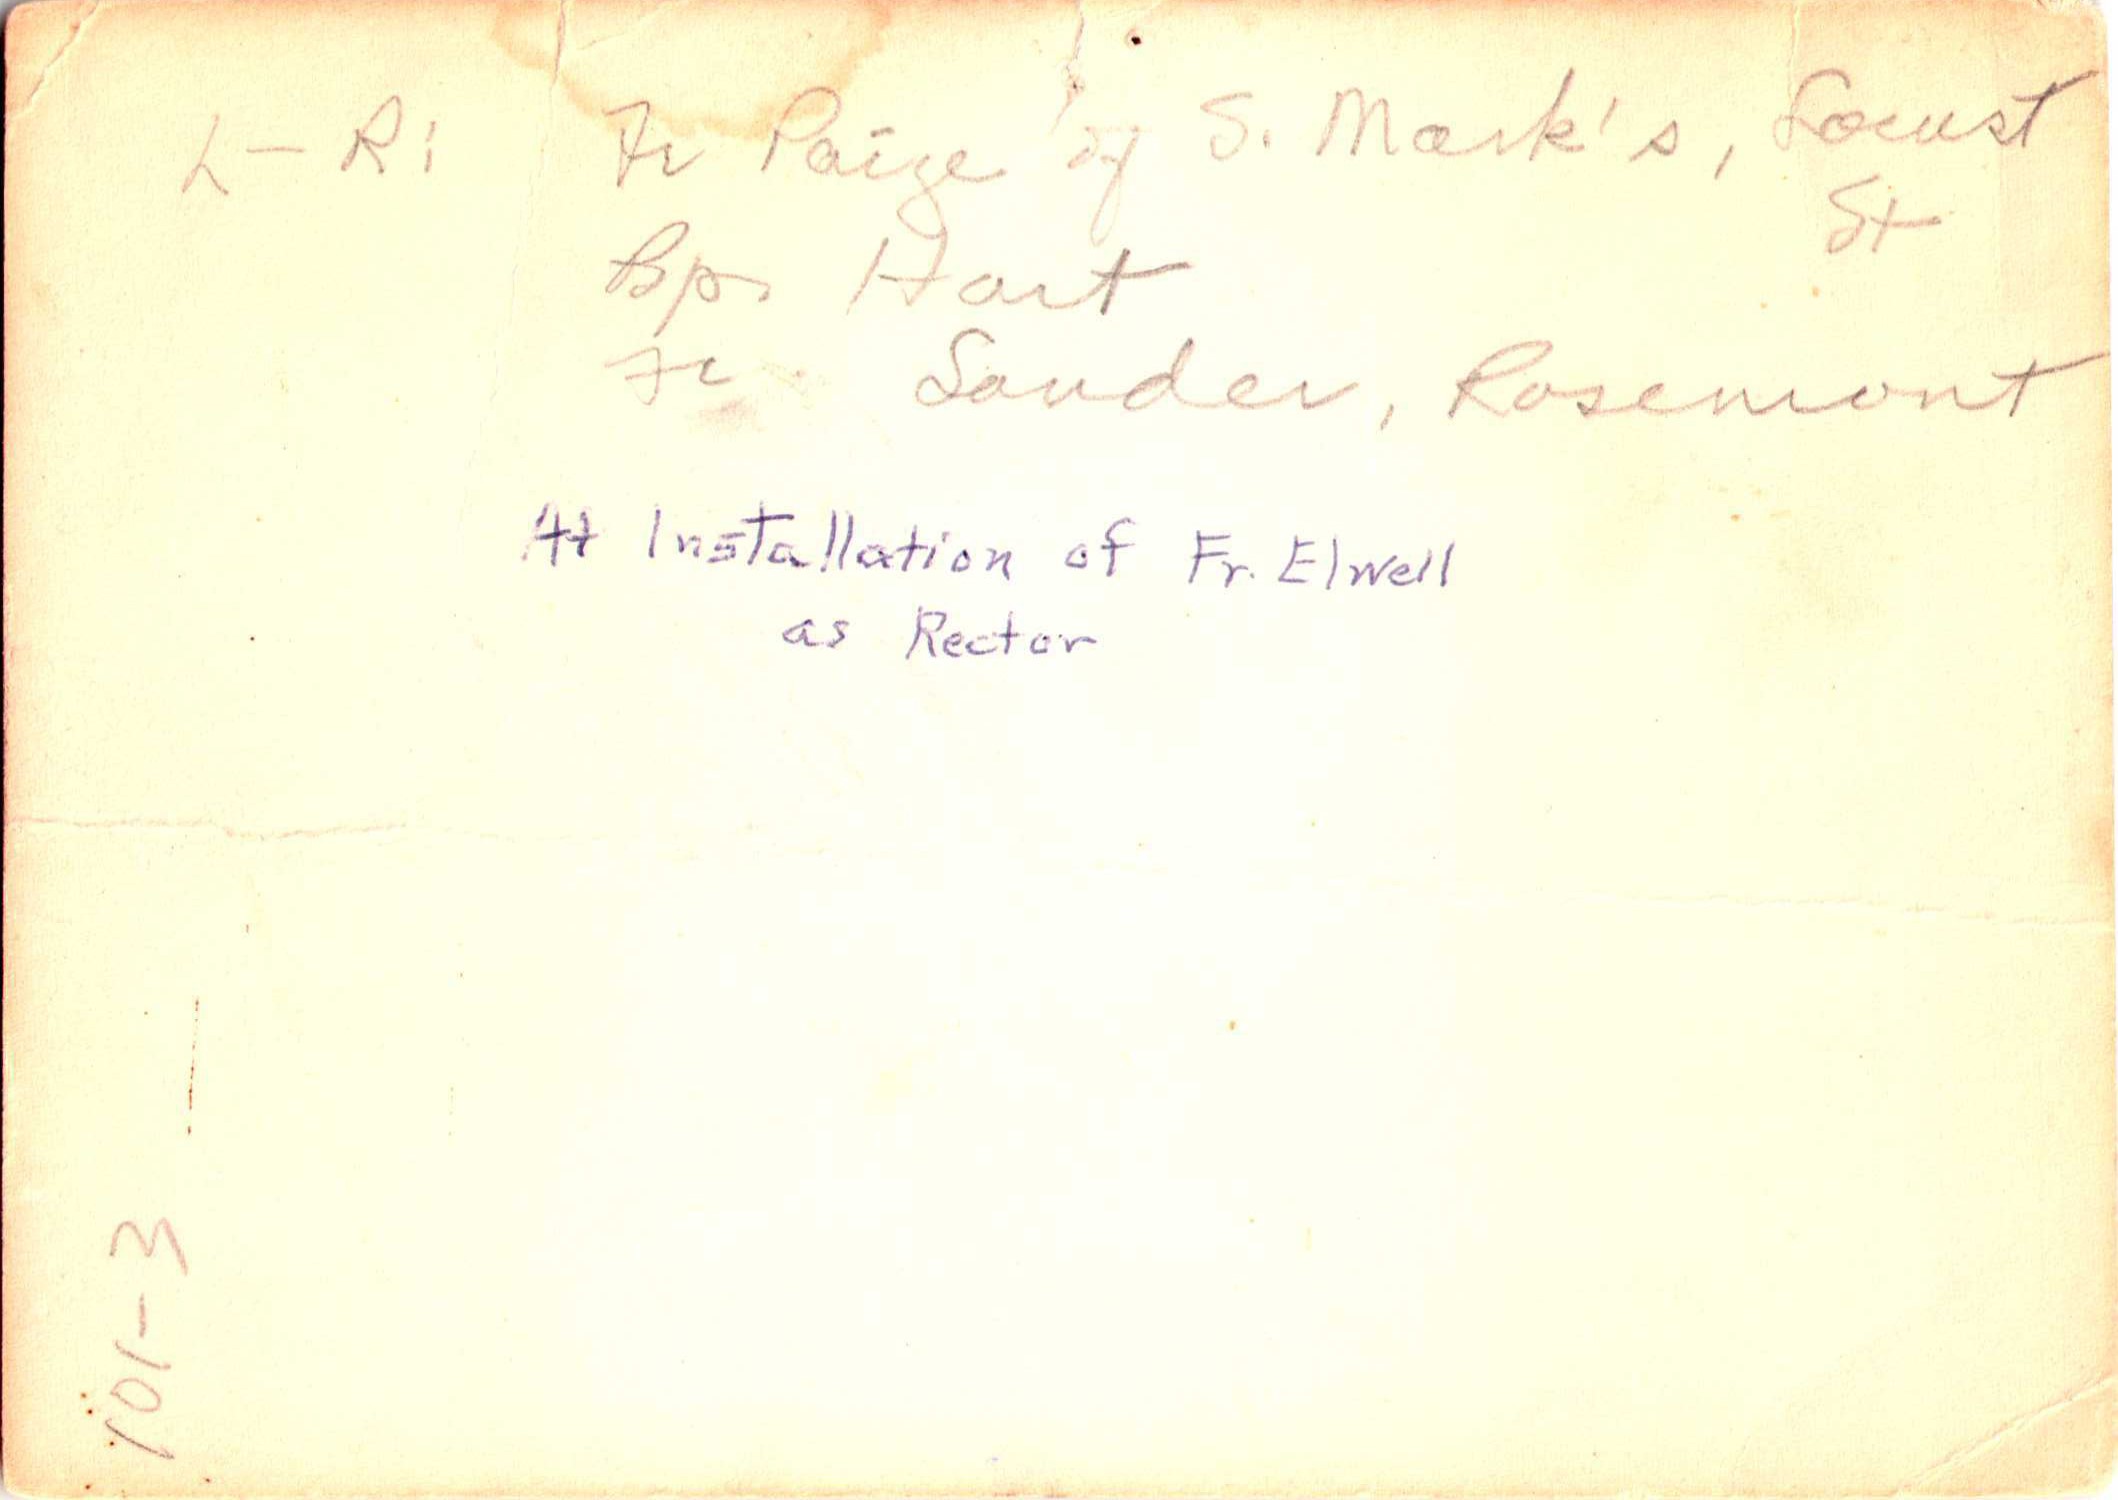 L – R: Fr Paige of S. Mark's, Locust
St
Bp. Hart
Fr. Sander, Rosemont
At Installation of Fr. Elwell
as Rector
101-3